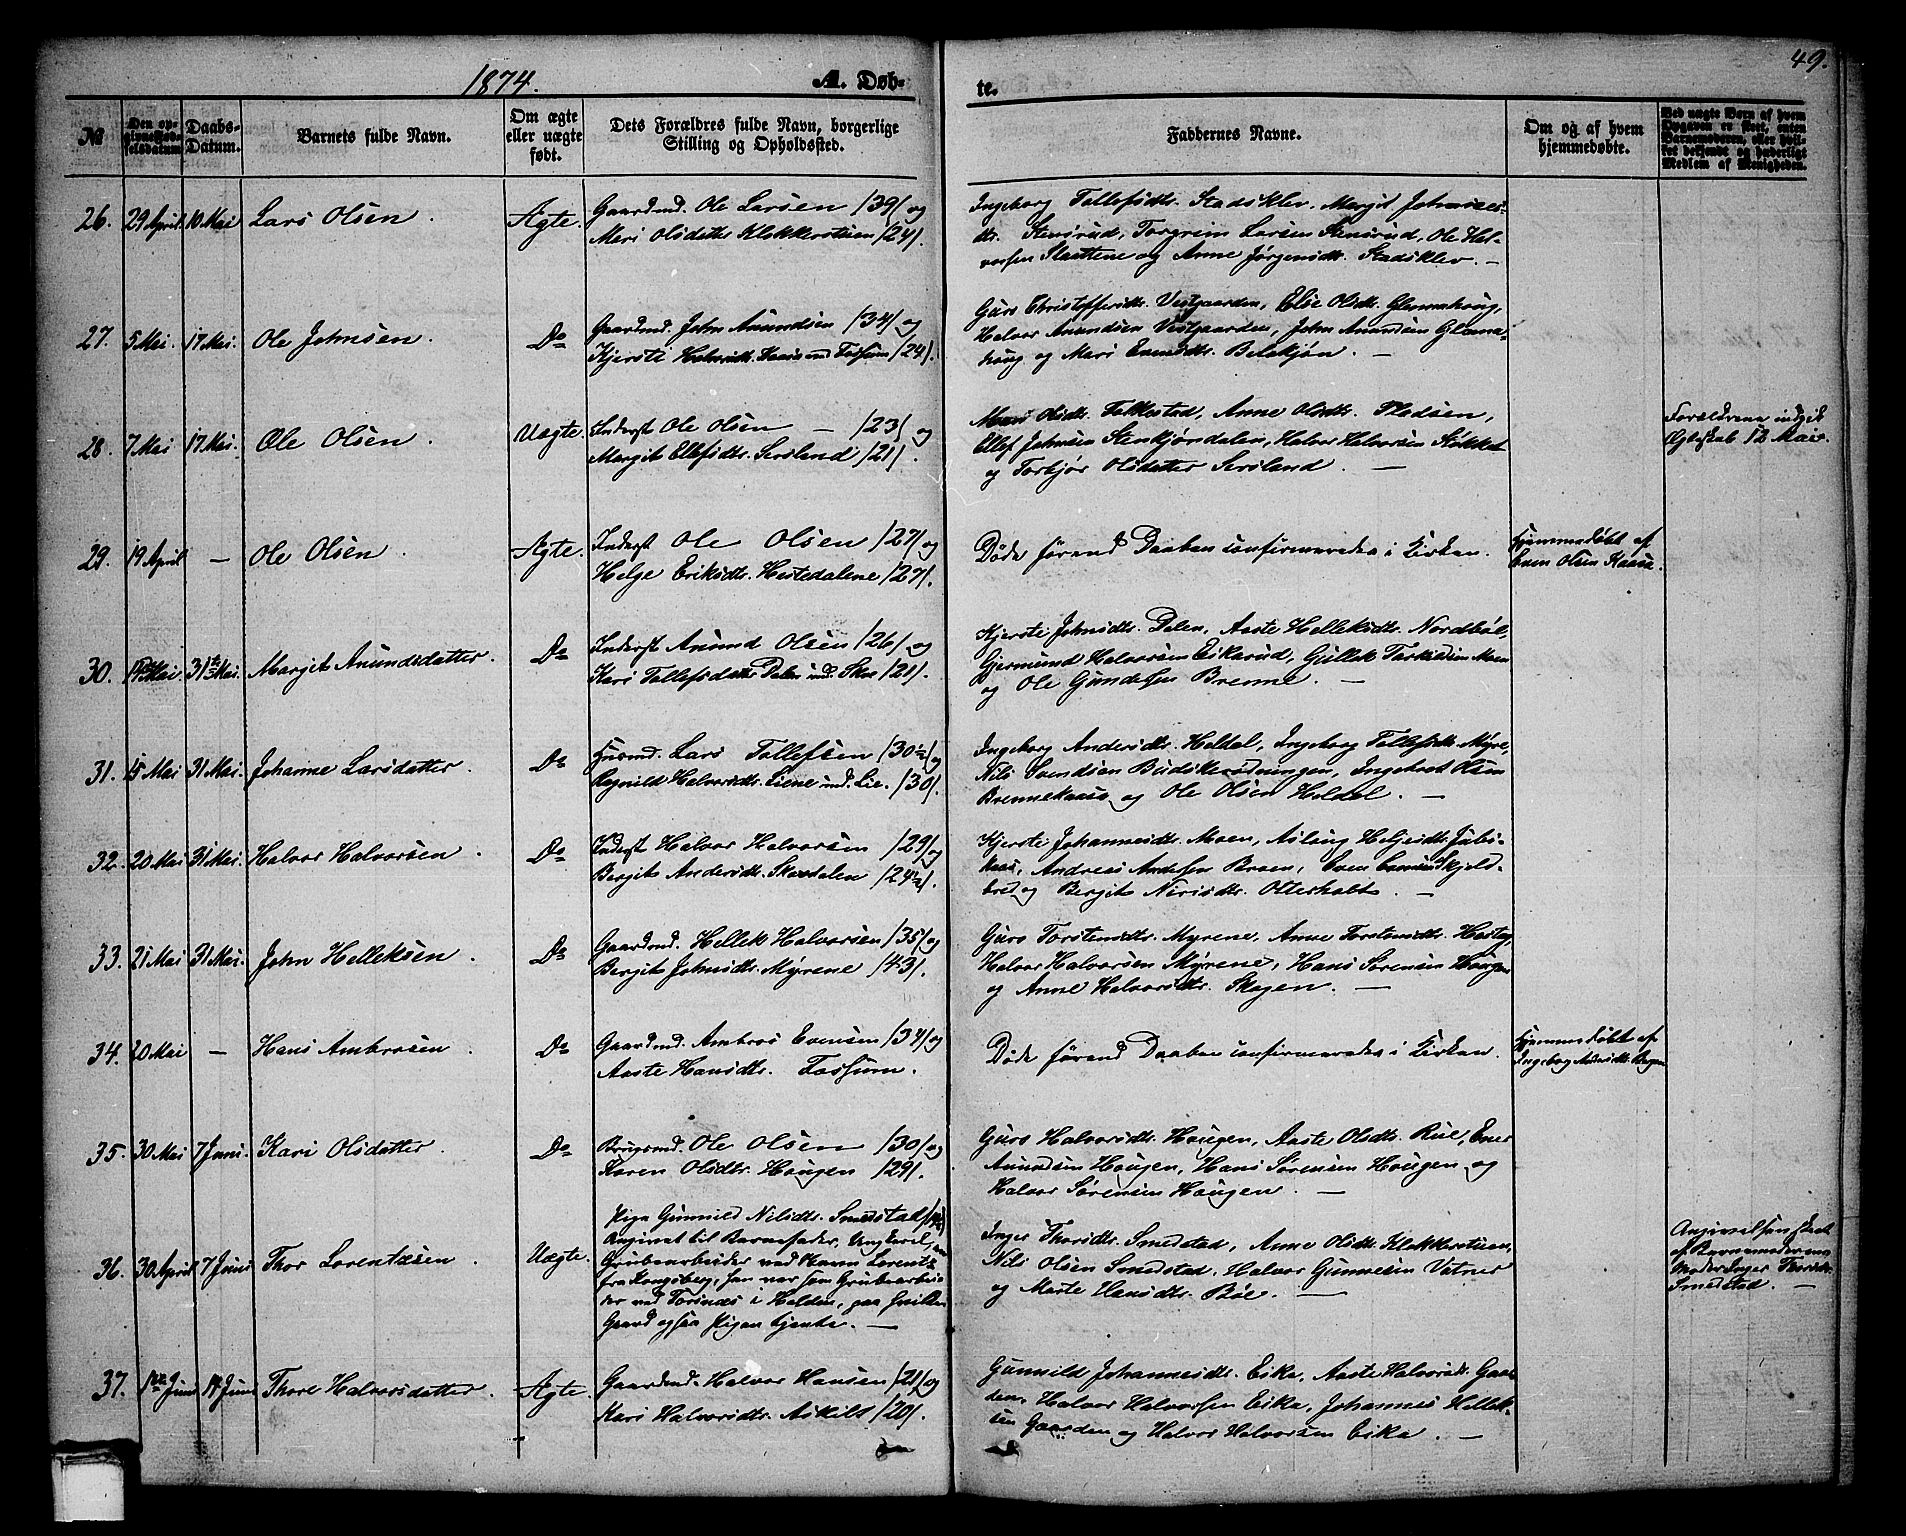 1874.
A. Døb-
te.
49.
№
Den op-
givne Fød-
selsdatum
Daabs-
Datum.
Barnets fulde Navn.
Om ægte
eller uægte
født.
Dets Forældres fulde Navn, borgerlige
Stilling og Opholdssted.
Faddernes Navne.
Om og af hvem
hjemmedøbte.
Ved uægte Børn af hvem
Opgaven er skeet, enten
Barnemoderen, eller hvil-
ket bekjendt og hæderligt
Medlem af Menigheden.
26. 29 April 10 Mai Lars Olsen. Ægte.
Gaardmd. Ole Larsen /39/ og
Mari Olsdatter Klokkerstuen /24/.
Ingeborg Tollefsdtr. Stadsklev, Margit Johannes-
dtr. Stensrud, Torgrim Larsen Stensrud, Ole Hal-
vorsen Slaattene og Anne Jørgensdtr. Stadsklev. —
27. 5 Mai 17 Mai. Ole Johnsen. Do
Gaardmd. John Anundsen /34/ og
Kjersti Halvorsdtr. Kaasa und. Fossum /24/.
Guro Christoffersdtr. Vestgaarden, Else Olsdtr. Glennahoug,
Halvor Anundsen Vestgaarden, John Anundsen Glenna-
houg og Mari Evensdtr. Bolekjøn. —
28. 7 Mai 17 Mai. Ole Olsen. Uægte.
Inderst Ole Olsen — /23/ og
Margit Ellefsdtr. Sorsland /21/.
Mari Olsdtr. Folkestad, Anne Olsdtr. Pladsen,
Ellef Johnsen Stenkjøndalen, Halvor Halvorsen Støkket
og Torbjør Olsdatter Sorsland. —
Forældrene indgik
Ægteskab 12 Mai.
29. 19 April — Ole Olsen. Ægte.
Inderst Ole Olsen /27/ og
Helge Eriksdtr. Hestedalene /27/.
Døde førend Daaben confirmeredes i Kirken.
Hjemmedøbt af
Even Olsen Kaasa.
30. 14 Mai 31te Mai. Margit Anundsdatter. Do
Inderst Anund Olsen /26/ og
Kari Tollefsdatter Dalen und. Skoe /21/.
Kjersti Johnsdtr. Dalen, Aaste Helleksdtr. Nordbø,
Gjermund Halvorsen Eikerud, Gullek Tarkildsen Moen
og Ole Gundesen Brenne. —
31. 15 Mai 31 Mai. Johanne Larsdatter. Do
Husmd. Lars Tollefsen /30½/ og
Ragnild Halvorsdtr. Liene und. Lie. /30/.
Ingeborg Andersdtr. Heldal, Ingeborg Tollefsdtr. Myre,
Nils Svendsen Budskerødningen, Ingebret Olsen
Brennekaasa og Ole Olsen Heldal. —
32. 20 Mai 31 Mai. Halvor Halvorsen. Do
Inderst Halvor Halvorsen /29/ og
Bergit Andersdtr. Skoedalen /24½/.
Kjersti Johannesdtr. Moen, Aslaug Heljesdtr. Juls-
kaas, Andreas Andersen Braen, Even Skjeld-
bred og Bergit Nirisdtr. Otterholt. —
33. 21 Mai 31 Mai. John Helleksen. Do
Gaardmd. Hellek Halvorsen /35/ og
Bergit Johnsdtr. Myrene /43/.
Guro Torstensdtr. Myrene, Anne Torstensdtr. Hesty,
Halvor Halvorsen Myrene, Hans Sørensen Hougen
og Anne Halvorsdtr. Skogen. —
34. 20 Mai — Hans Ambrosen. Do
Gaardmd. Ambros Evensen /34/ og
Aaste Hansdtr. Fossum.
Døde førend Daaben confirmeredes i Kirken.
Hjemmedøbt af
Ingeborg Andersdtr. Bergen
35. 30 Mai 7 Juni. Kari Olsdatter. Do
Brugsmd. Ole Olsen /30/ og
Karen Olsdtr. Hougen /29/.
Guro Halvorsdtr. Hougen, Aaste Olsdtr. Rue, Ener
Anundsen Hougen, Hans Sørensen Hougen og
Halvor Sørensen Hougen. —
36. 30 April 7 Juni Thor Lorentzsen Uægte.
Pige Gunnild Nilsdtr. Smedstad
Angivet til Barnefader, Ungkarl,
Grubearbeider ved Navn Lorents
fra Kongsberg, han var som Grubearbei-
der ved Torsnæs i Holden, paa hvilken
Gaard ogsaa Pigen tjente. —
Inger Thorsdtr. Smedstad, Anne Olsdtr. Klokkerstuen,
Nils Olsen Smedstad. Halvor Gunnesen Vatnar
og Marte Hansdtr. Bøe. —
Angivelsen skeet
af Barnemoderens
Moder Inger Thorsdtr.
Smedstad. —
37. 1ste Juni 14 Juni Thore Halvorsdatter. Ægte.
Gaardmd. Halvor Hansen /21/ og
Kari Halvorsdtr. Askilt /20/.
Gunnild Johannesdtr. Eika, Aaste Halvorsdtr. Gaar-
den, Halvor Halvorsen Eika, Johannes Hellek-
sen Gaarden og Halvor Halvorsen Eika. —